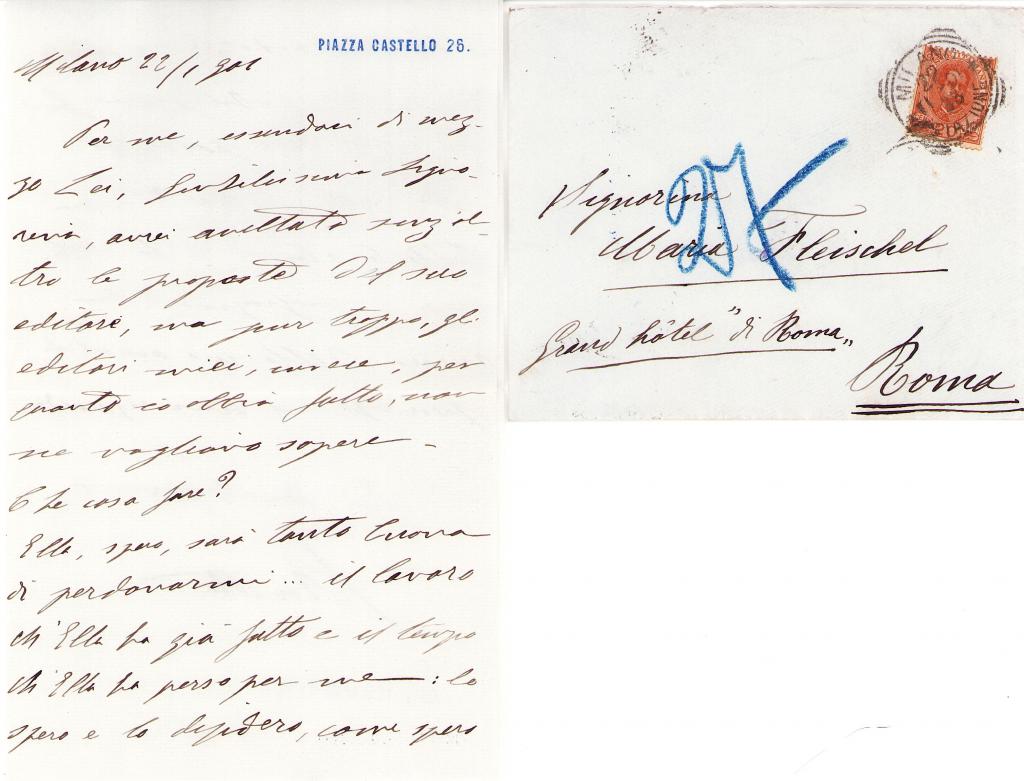 PIAZZA CASTELLO 26.
Milano 22/1 901
Per me, essendoci di mez-
zo Lei, Gentilissima Signo-
rina, avrei accettato senz'ol-
tro le proposte del suo
editore, ma pur troppo, gli
editori miei, invece, per
quanto io abbia fatto, non
ne vogliono sapere -
Che cosa fare?
Ella, spero, sarà tanto buona
di perdonarmi... il lavoro
ch'Ella ha già fatto e il tempo
ch'Ella ha perso per me: lo
spero e lo desidero, come spero
Signorina
Maria Fleischel
Grand hôtel "di Roma„
Roma
MILANO